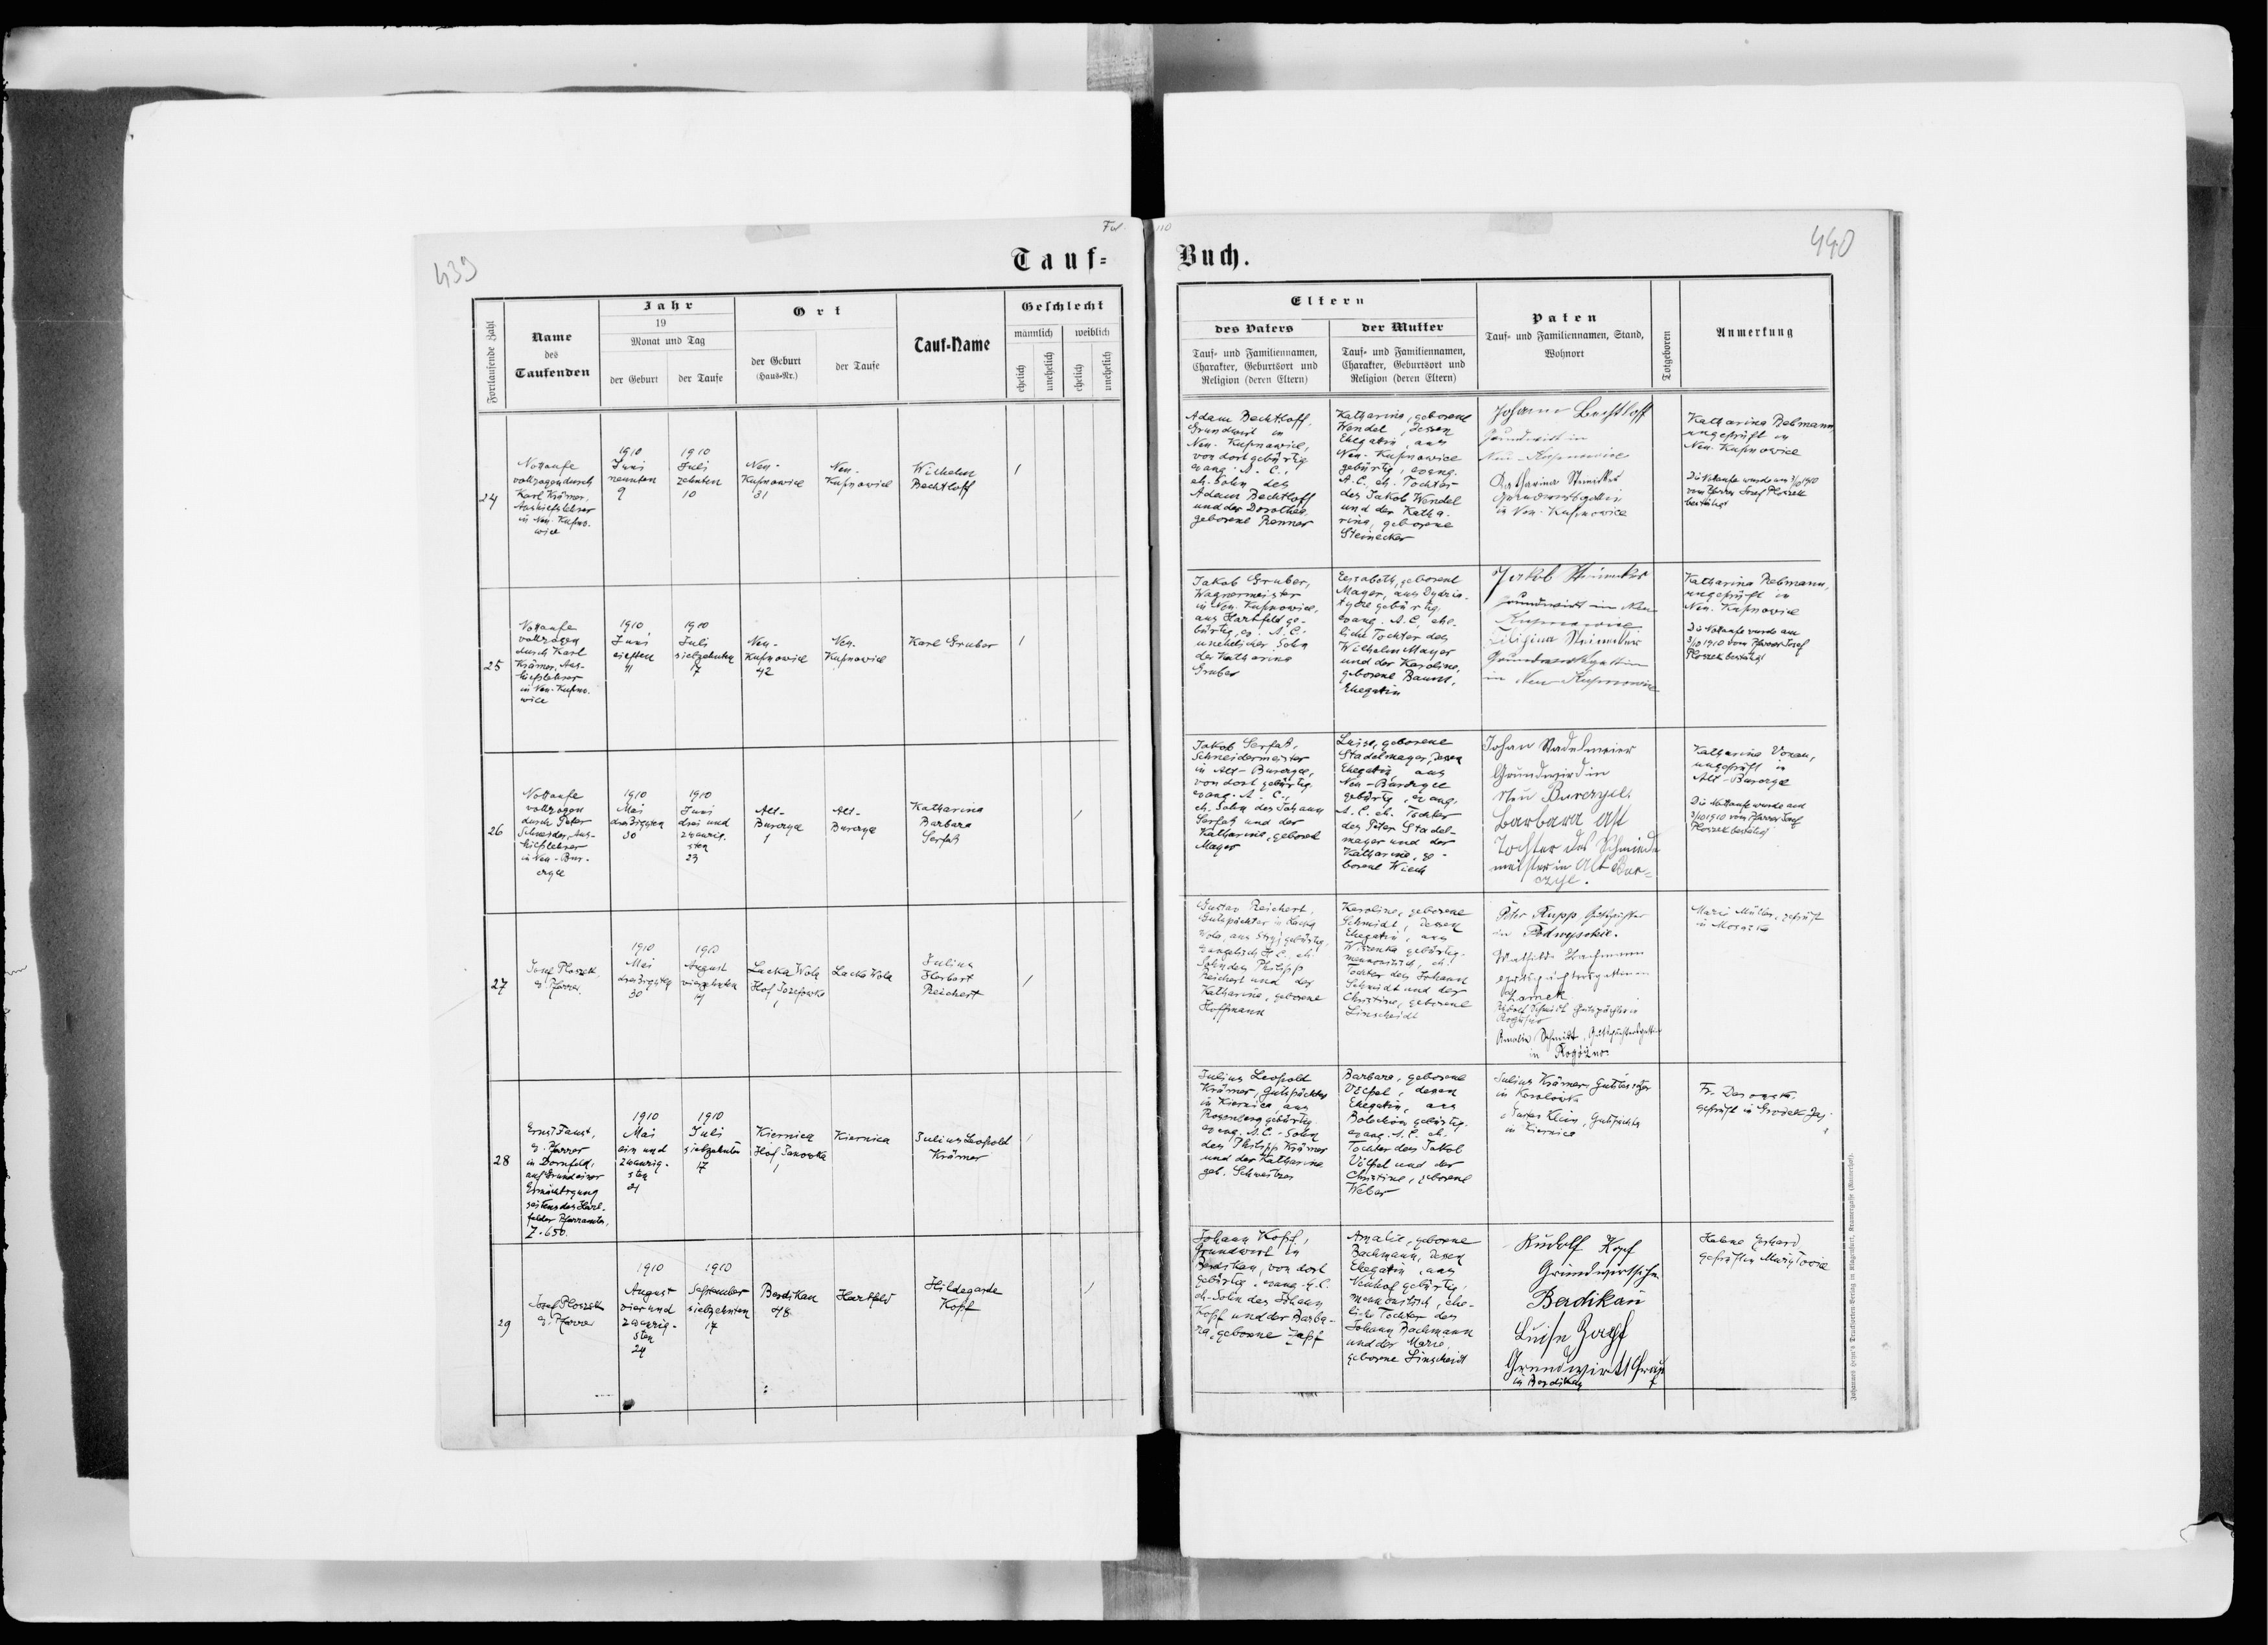 439
Tauf=
Fortlaufende Zahl
Name
des
Taufenden
Jahr
19
Monat und Tag
der Geburt
der Taufe
Ort
der Geburt
(Haus-Nr.)
der Taufe
Tauf-Name
Geschlecht
männlich
weiblich
ehelich
unehelich
ehelich
unehelich
24
Nottaufe
vollzogen durch
Karl Krämer,
Aushilfslehrer
in Neu-Kupno-
wice
1910
Juni
neunten
9
1910
Juli
zehnten
10
Neu-
Kupnowice
31
Neu-
Kupnowice
Wilhelm
Bechtloff
1
25
Nottaufe
vollzogen
durch Karl
Krämer, Aus-
hilfslehrer
in Neu-Kupno-
wice
1910
Juni
elften
11
1910
Juli
siebzehnten
17
Neu-
Kupnowice
42
Neu-
Kupnowice
Karl Gruber
1
26
Nottaufe
vollzogen
durch Peter
Schneider, Aus-
hilfslehrer
in Neu-Bur-
czyce
1910
Mai
dreißigsten
30
1910
Juni
drei und
zwanzig-
sten
23
Alt-
Burczyce
1
Alt-
Burczyce
Katharina
Barbara
Serfaß
1
27
Josef Ploszek
ev. Pfarrer
1910
Mai
dreißigsten
30
1910
August
vierzehnten
14
Lacka Wola
Hof Jozefowka
1
Lacka Wola
Julius
Herbert
Reichert
1
28
Ernst Faust,
ev. Pfarrer
in Dornfeld,
auf Grund einer
Ermächtigung
seitens des Hart-
felder Pfarramtes,
Z. 650.
1910
Mai
ein und
zwanzig-
sten
21
1910
Juli
siebzehnten
17
Kiernica
Hof Janowka
1
Kiernica
Julius Leopold
Krämer
1
29
Josef Ploszek
ev. Pfarrer
1910
August
vier und
zwanzig-
sten
24
1910
September
siebzehnten
17
Berdikau
48
Hartfeld
Hildegarde
Kopf
1
440
Buch.
Eltern
des Vaters
Tauf- und Familiennamen,
Charakter, Geburtsort und
Religion (deren Eltern)
der Mutter
Tauf- und Familiennamen,
Charakter, Geburtsort und
Religion (deren Eltern)
Paten
Tauf- und Familiennamen, Stand,
Wohnort
Totgeboren
Anmerkung
Adam Bechtloff,
Grundwirt in
Neu-Kupnowice,
von dort gebürtig
evang. A. C.,
eh. Sohn des
Adam Bechtloff
und der Dorothea,
geborene Renner
Katharina, geborene
Wendel, dessen
Ehegatin, aus
Neu-Kupnowice
gebürtig, evang.
A. C. eh. Tochter
des Jakob Wendel
und der Katha-
rina, geborene
Steinecker
Johann Bechtloff
Grundwirt in
Neu-Kupnowice
Katharina
Grundwirtsgattin
in Neu-Kupnowice
Katharina Rebmann,
ungeprüft in
Neu-Kupnowice
Die Nottaufe wurde am 3/10 1910
vom Pfarrer Josef Ploszek
bestätigt
Jakob Gruber,
Wagnermeister
in Neu-Kupnowice,
aus Hartfeld ge-
bürtig, ev. A. C.
unehelicher Sohn
der Katharina
Gruber
Elisabeth, geborene
Mayer, aus
gebürtig,
evang. A. C., ehe-
liche Tochter des
Wilhelm Mayer
und der Karoline,
geborene Baum,
Ehegatin
Jakob Steinecker
Grundwirt in Neu
Kupnowice
Grundwirtsgattin
in Neu Kupnowice
Katharina Rebmann,
ungeprüft in
Neu-Kupnowice
Die Nottaufe wurde am
3/10 1910 vom Pfarrer Josef
Ploszek bestätigt
Jakob Serfaß,
Schneidermeister
in Alt-Burczyce,
von dort gebürtig,
evang. A. C.,
eh. Sohn des Johann
Serfaß und der
Katharine, geborene
Mayer
Luise, geborene
Stadelmayer, dessen
Ehegatin, aus
Neu-Burczyce
gebürtig, evang.
A. C. eh. Tochter
des Peter Stadel-
mayer und der
Katharine, ge-
borene Wiech
Johan Stadelmeier
Grundwird in
Neu Burczyce.
Barbara Ast
Tochter des Schmiede
meister in Alt Bur=
czyce.
Katharina
ungeprüft in
Alt-Burczyce
Die Nottaufe wurde am
3/10 1910 vom Pfarrer Josef
Ploszek bestätigt
Gustav Reichert,
Gutspächter in Lacka
Wola, aus Stryj gebürtig,
evangelisch H. C., eh.
Sohn des Philipp
Reichert und der
Katharine, geborene
Hoffmann
Karoline, geborene
Schmidt, dessen
Ehegatin, aus
Wiszenka gebürtig,
mennonitisch, eh.
Tochter des Johann
Schmidt und der
Christine, geborene
Linscheidt
Peter Rupp Gutspächter
in Podwysokie.
Mathilde Bachmann
Amalie Schmidt, Gutspächtersgattin
in Rogóżno
Marie Müller, geprüft
in
Julius Leopold
Krämer, Gutspächter
in Kiernica, aus
Rosenberg gebürtig,
evang. A. C. Sohn
des Philipp Krämer
und der Katharine
geb. Schweitzer
Barbara, geborene
Völpel, dessen
Ehegatin, aus
Bolechów gebürtig,
evang. A. C. eh.
Tochter des Jakob
Völpel und der
Christine, geborene
Weber
Julius Krämer, Gutsbesitzer
in
Klein, Gutspächter
in Kiernica
geprüft in Grodek Jag.
Johann Kopf,
Grundwirt in
Berdikau, von dort
gebürtig, evang. H. C.
eh. Sohn des Johann
Kopf und der Barba-
ra, geborene Zapf
Amalie, geborene
Bachmann, dessen
Ehegatin, aus
Neuhof gebürtig,
mennonitisch, ehe-
liche Tochter des
Johann Bachmann
und der Marie,
geborene Linscheidt
Rudolf Kopf
Grundwirtssohn
Berdikau
Luise Zapf
Grundwirtsfrau
in Berdikau
Helene Gerhard
geprüft in
Johannes Heyn's Drucksorten-Verlag in Klagenfurt, Kramergasse